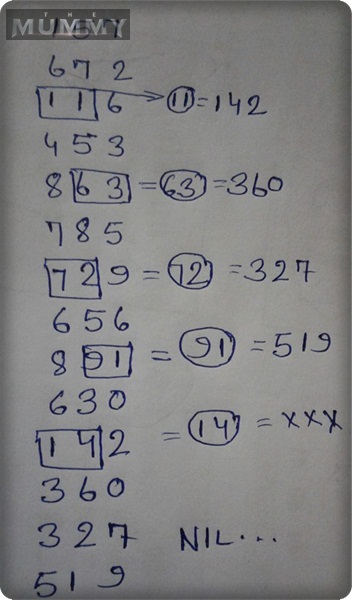 THE
MUMMY
157
672
116 → 11 = 142
453
863 = 63 = 360
785
729 = 72 = 327
656
891 = 91 = 519
630
142 = 14 = xxx
360
327 NIL...
519